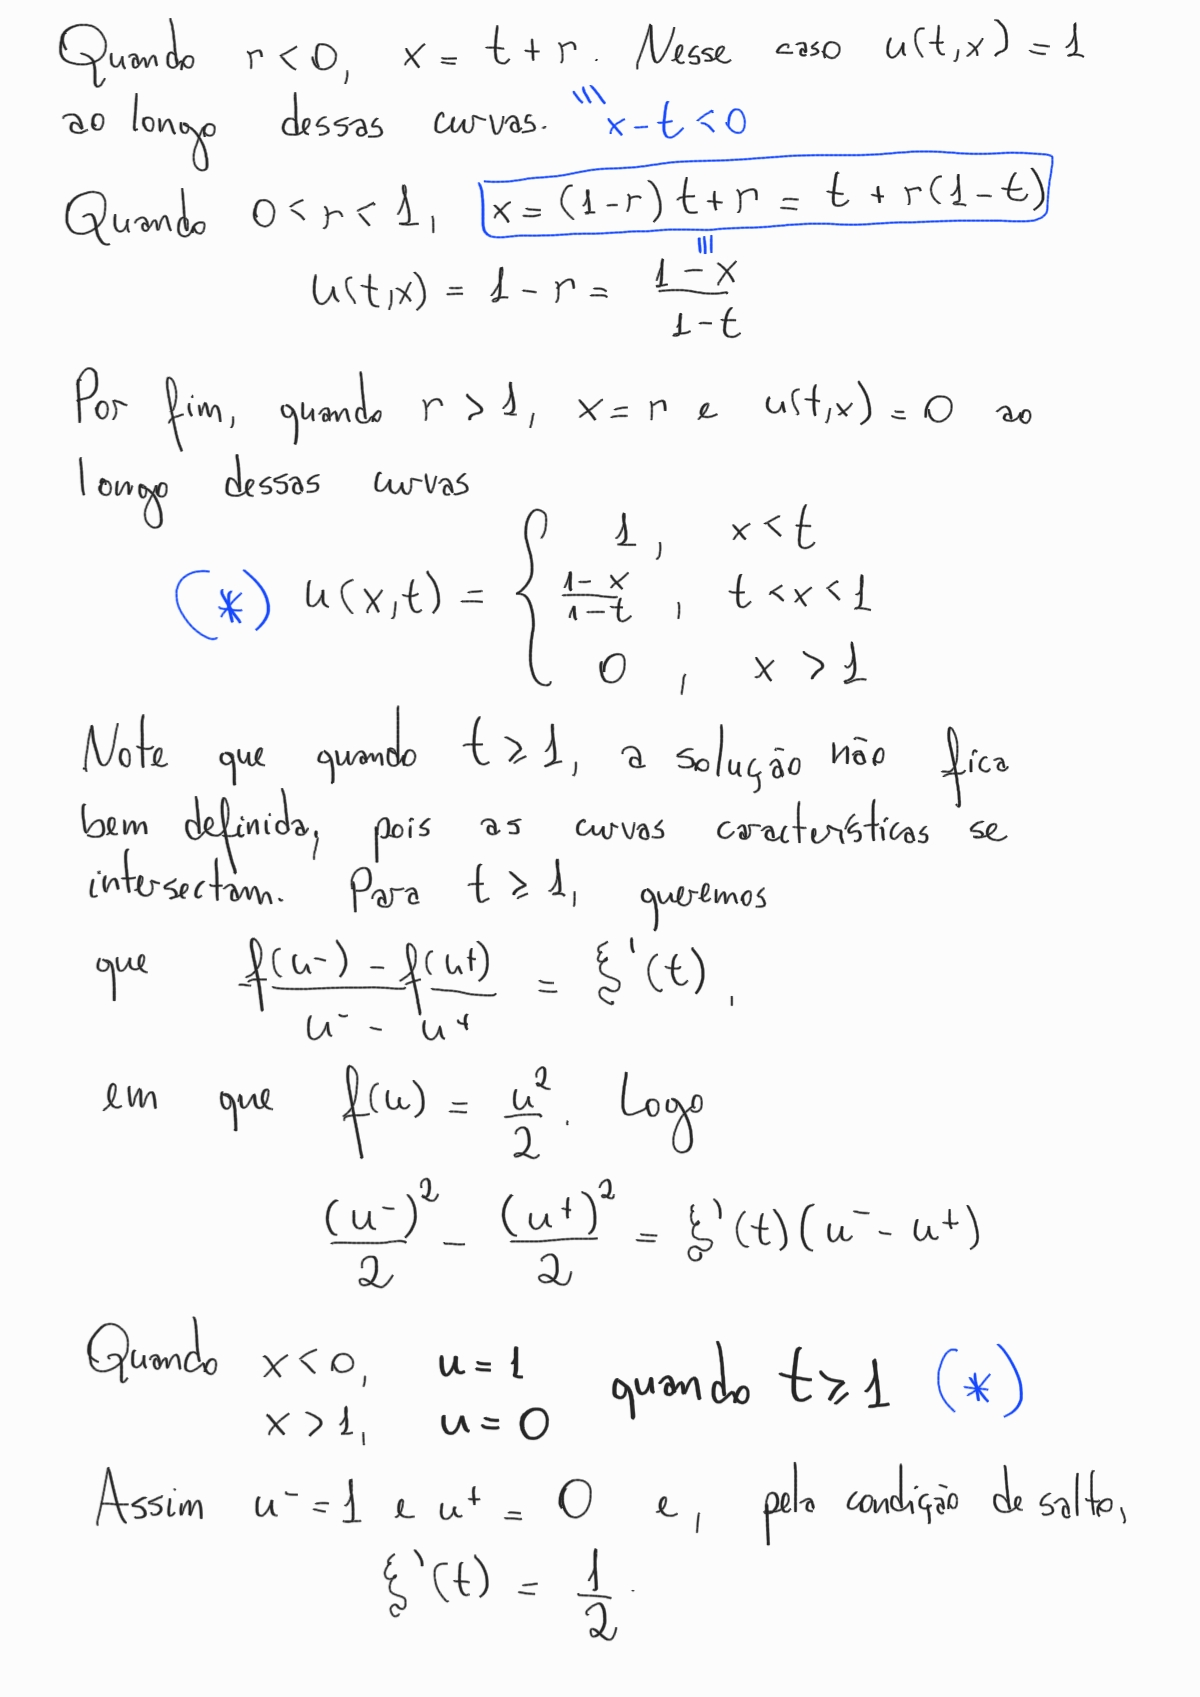 Quando r < 0, x = t + r. Nesse caso u(t,x) = 1
ao longo dessas curvas. ||| x - t < 0
Quando 0 < r < 1, x = (1-r) t + r = t + r(1-t)
|||
u(t,x) = 1 - r = \frac{1-x}{1-t}
Por fim, quando r > 1, x = r e u(t,x) = 0 ao
longo dessas curvas
(*) u(x,t) = { 1, x < t
\frac{1-x}{1-t}, t < x < 1
0, x > 1
Note que quando t ≥ 1, a solução não fica
bem definida, pois as curvas características se
intersectam. Para t ≥ 1, queremos
que \frac{f(u^-) - f(u^+)}{u^- - u^+} = ξ'(t),
em que f(u) = \frac{u^2}{2}. Logo
\frac{(u^-)^2}{2} - \frac{(u^+)^2}{2} = ξ'(t)(u^- - u^+)
Quando x < 0, u = 1 quando t ≥ 1 (*)
x > 1, u = 0
Assim u^- = 1 e u^+ = 0 e, pela condição de salto,
ξ'(t) = \frac{1}{2}.